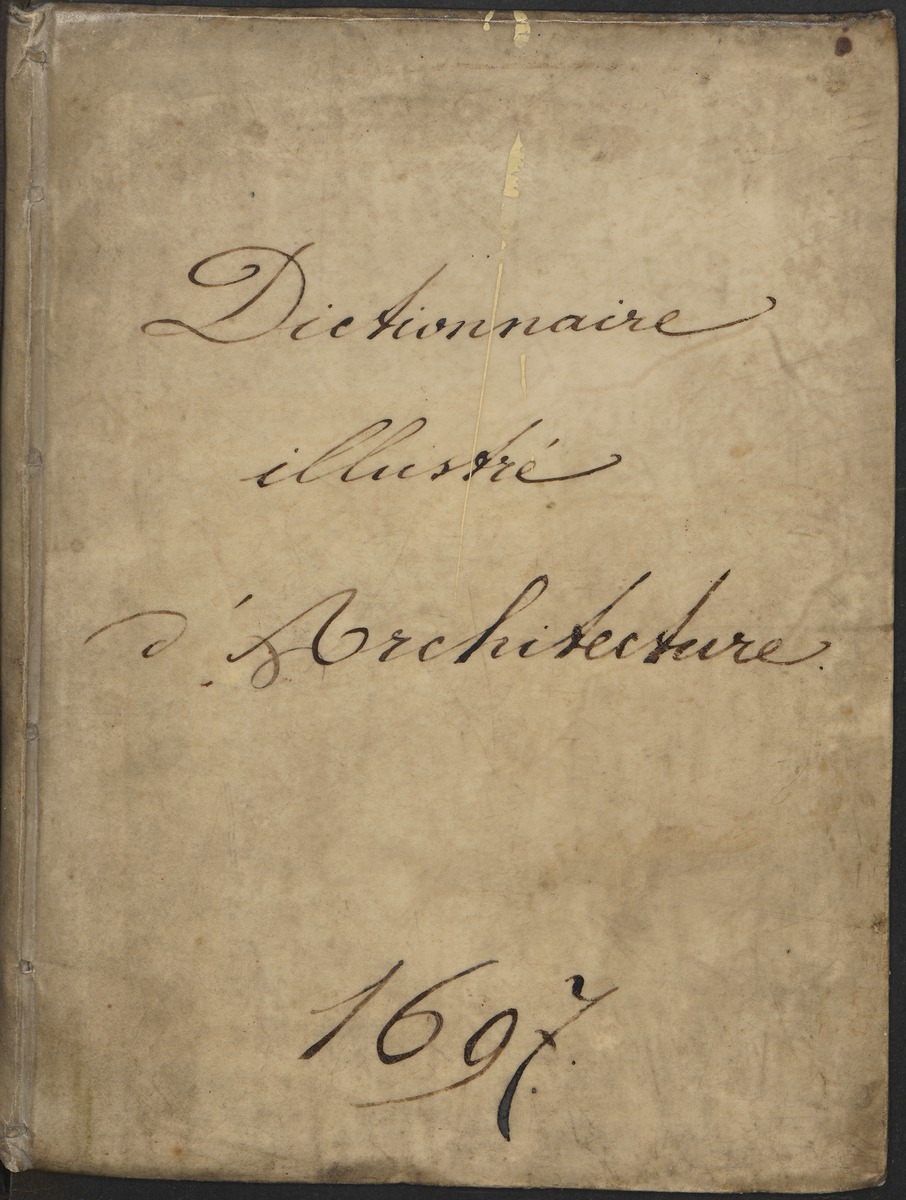 Dictionnaire
illustré
d'Architecture.
1697.